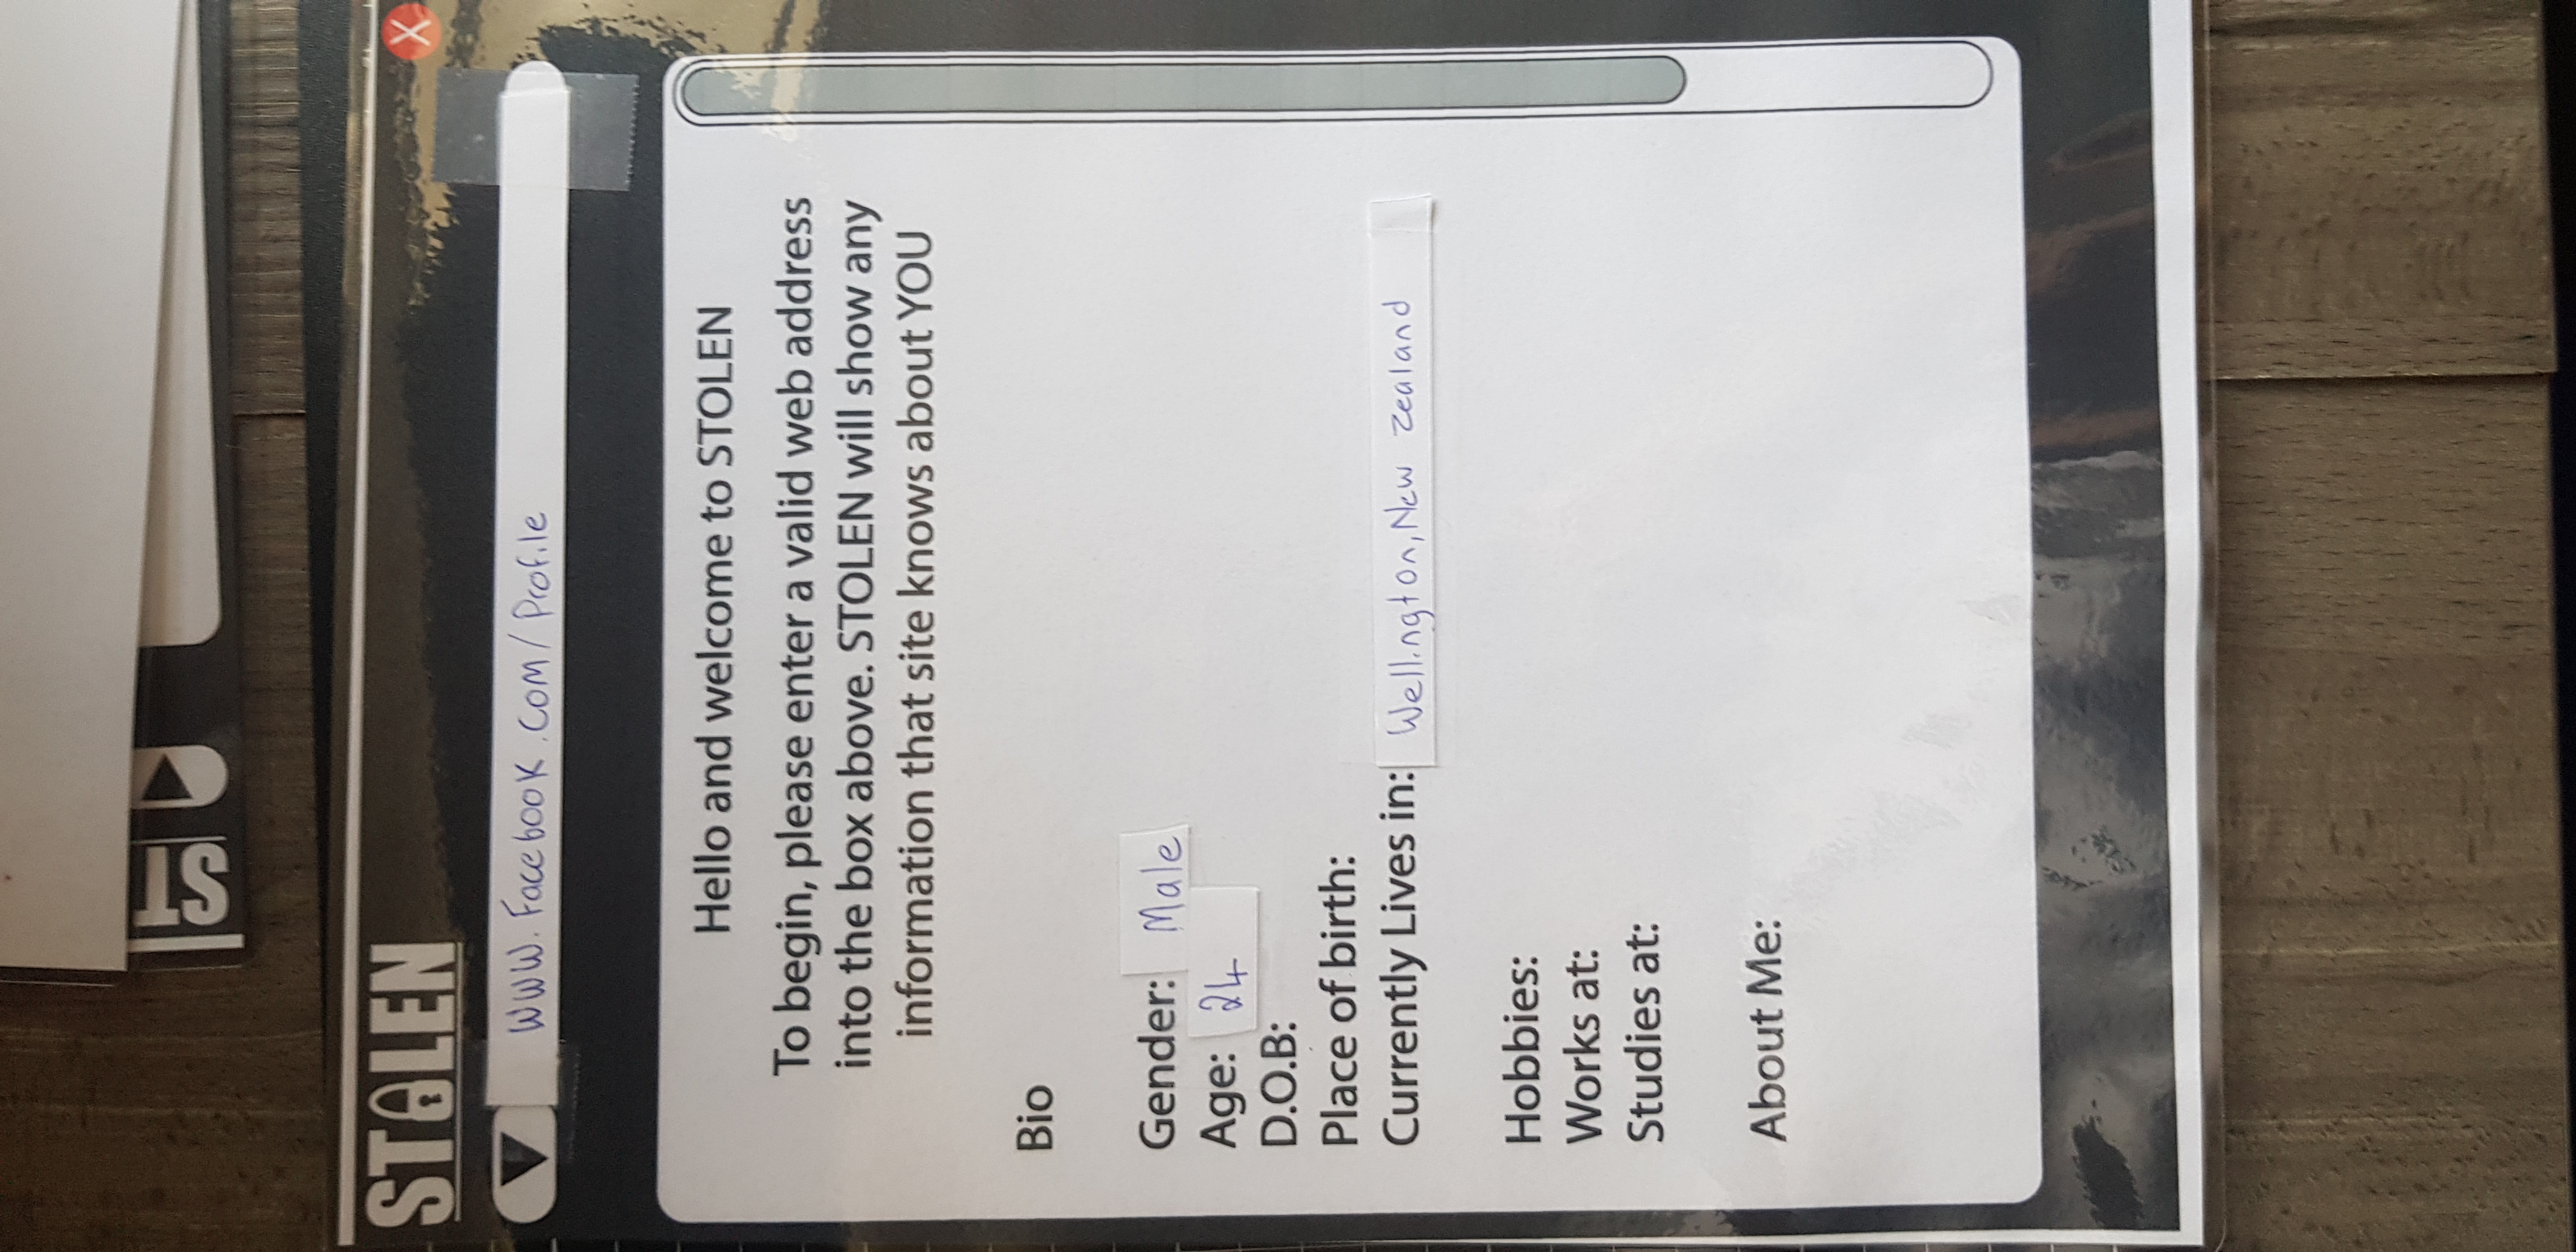 ST
STOLEN
X
WWW.Facebook.com/Profile
Hello and welcome to STOLEN
To begin, please enter a valid web address
into the box above. STOLEN will show any
information that site knows about YOU
Bio
Gender: Male
Age: 24
D.O.B:
Place of birth:
Currently Lives in: Wellington, New Zealand
Hobbies:
Works at:
Studies at:
About Me: